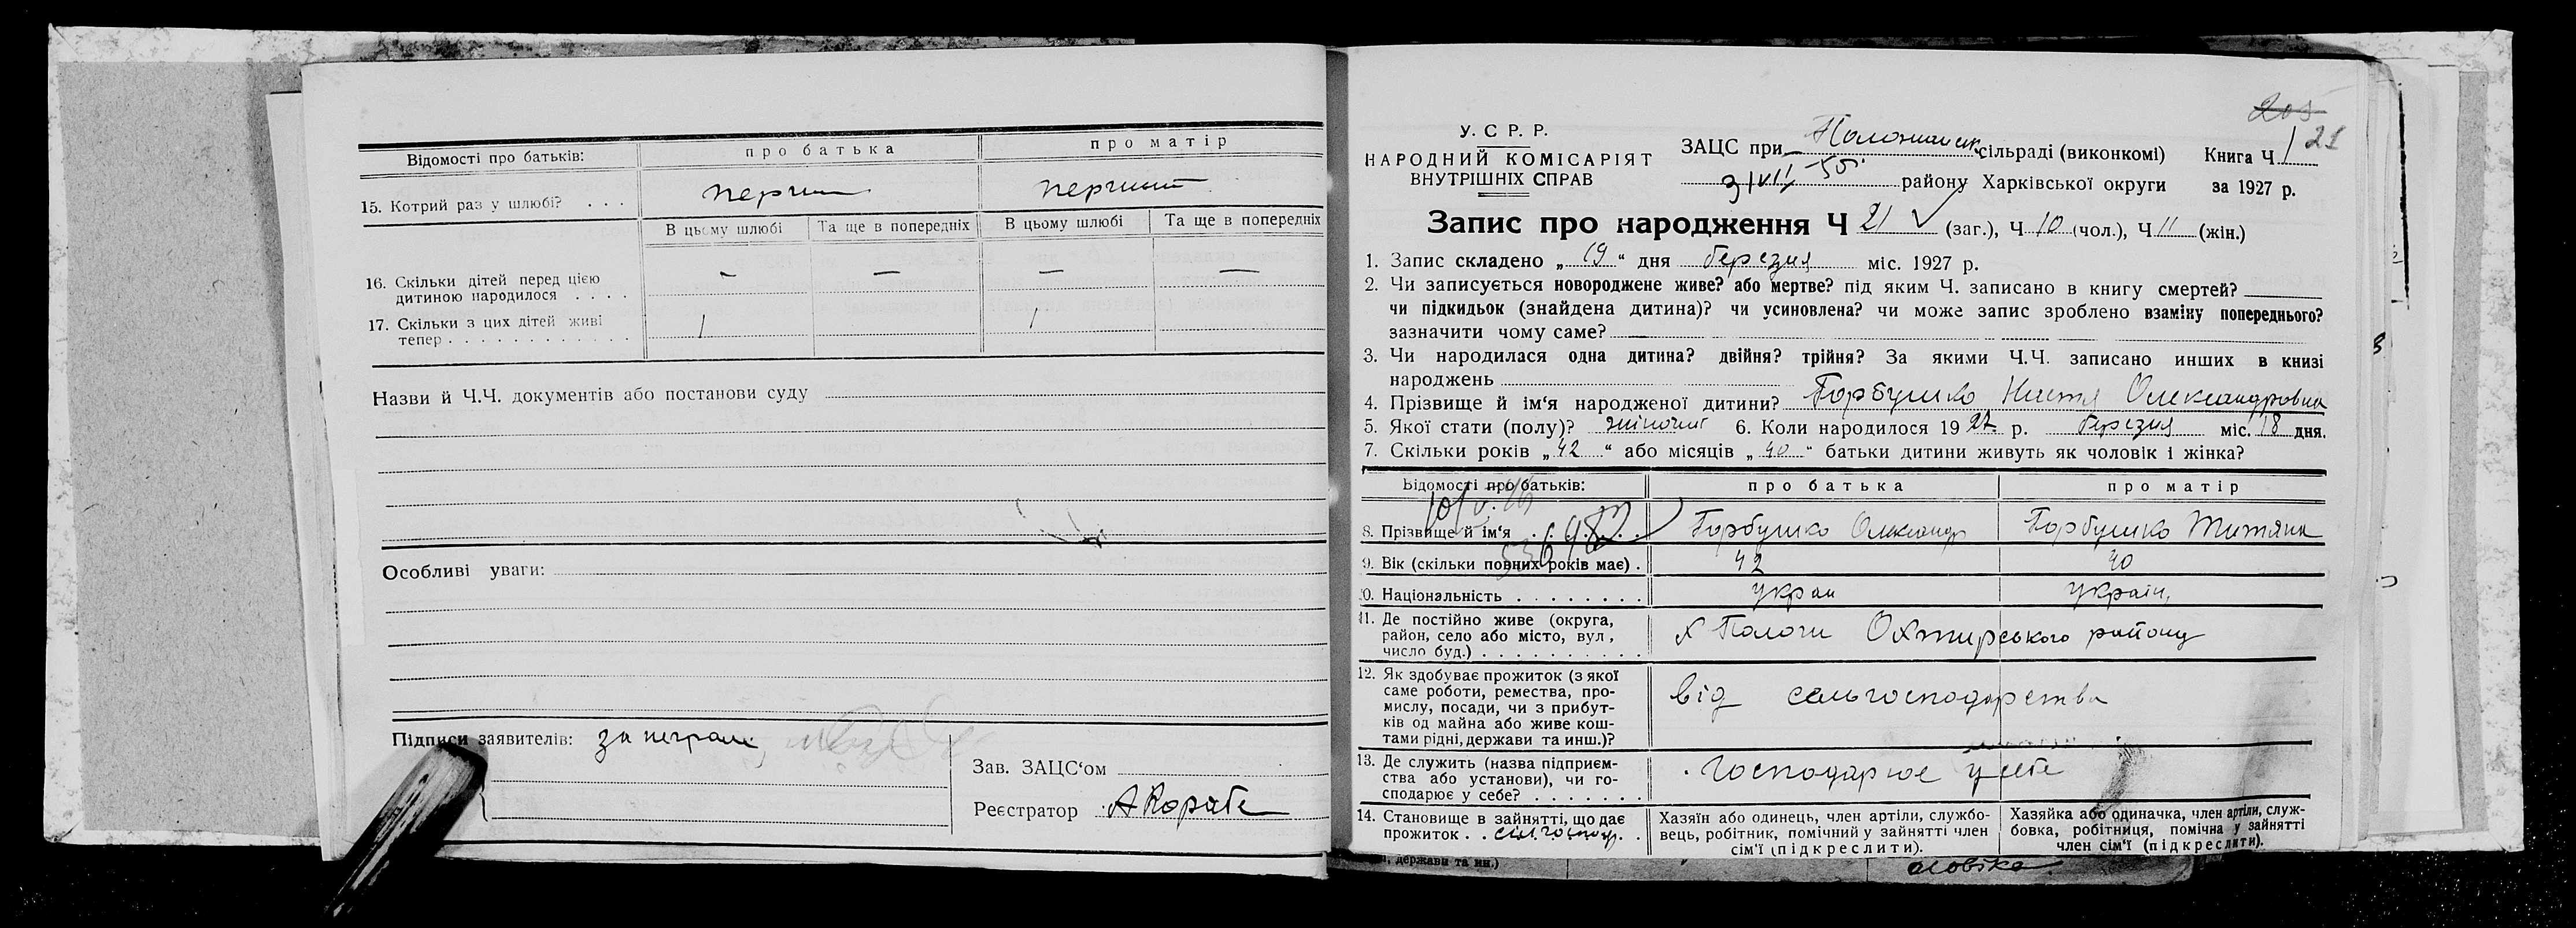 Відомості про батьків: про батька про матір
15. Котрий раз у шлюбі? . . . перший перший
В цьому шлюбі Та ще в попередніх В цьому шлюбі Та ще в попередніх
16. Скільки дітей перед цією — — — —
дитиною народилося . . . .
17. Скільки з цих дітей живі / /
тепер . . . . . . . . . . . .
Назви й Ч.Ч. документів або постанови суду
Особливі уваги:
Підписи заявителів:
Зав. ЗАЦС‘ом
Реєстратор
205
21
У. С Р. Р.
НАРОДНИЙ КОМІСАРІЯТ
ВНУТРІШНІХ СПРАВ
ЗАЦС при сільраді (виконкомі) Книга Ч 1
району Харківської округи за 1927 р.
Запис про народження Ч 21 (заг.), Ч 10 (чол.), Ч 11 (жін.)
1. Запис складено „ 19 “ дня березня міс. 1927 р.
2. Чи записується новороджене живе? або мертве? під яким Ч. записано в книгу смертей?
чи підкидьок (знайдена дитина)? чи усиновлена? чи може запис зроблено взаміну попереднього?
зазначити чому саме?
3. Чи народилася одна дитина? двійня? трійня? За якими Ч.Ч. записано инших в книзі
народжень
4. Прізвище й ім‘я народженої дитини? Горбушко Настя Олександровна
5. Якої стати (полу)? жіночої 6. Коли народилося 19 27 р. березня міс. 18 дня.
7. Скільки років „ 42 “ або місяців „ 40 “ батьки дитини живуть як чоловік і жінка?
Відомості про батьків: про батька про матір
8. Прізвище й ім‘я Горбушко Олександр Горбушко Титяна
9. Вік (скільки повних років має) . 42 40
10. Національність . . . . . . . . украи україн,
11. Де постійно живе (округа,
район, село або місто, вул,
число буд.) . . . . . . . . . . х Пологи Охтирського району
12. Як здобуває прожиток (з якої
саме роботи, ремества, про-
мислу, посади, чи з прибут-
ків од майна або живе кош-
тами рідні, держави та инш.)? від сельгосподарства
13. Де служить (назва підприєм-
ства або установи), чи го-
сподарює у себе? . . . . . . . Господарює у себе
14. Становище в зайнятті, що дає
прожиток . . сіл.господ.
Хазяїн або одинець, член артіли, службо-
вець, робітник, помічний у зайнятті член
сім‘ї (підкреслити).
Хазяйка або одиначка, член артіли, служ-
бовка, робітниця, помічна у зайнятті
член сім‘ї (підкреслити).
держави та ин.)